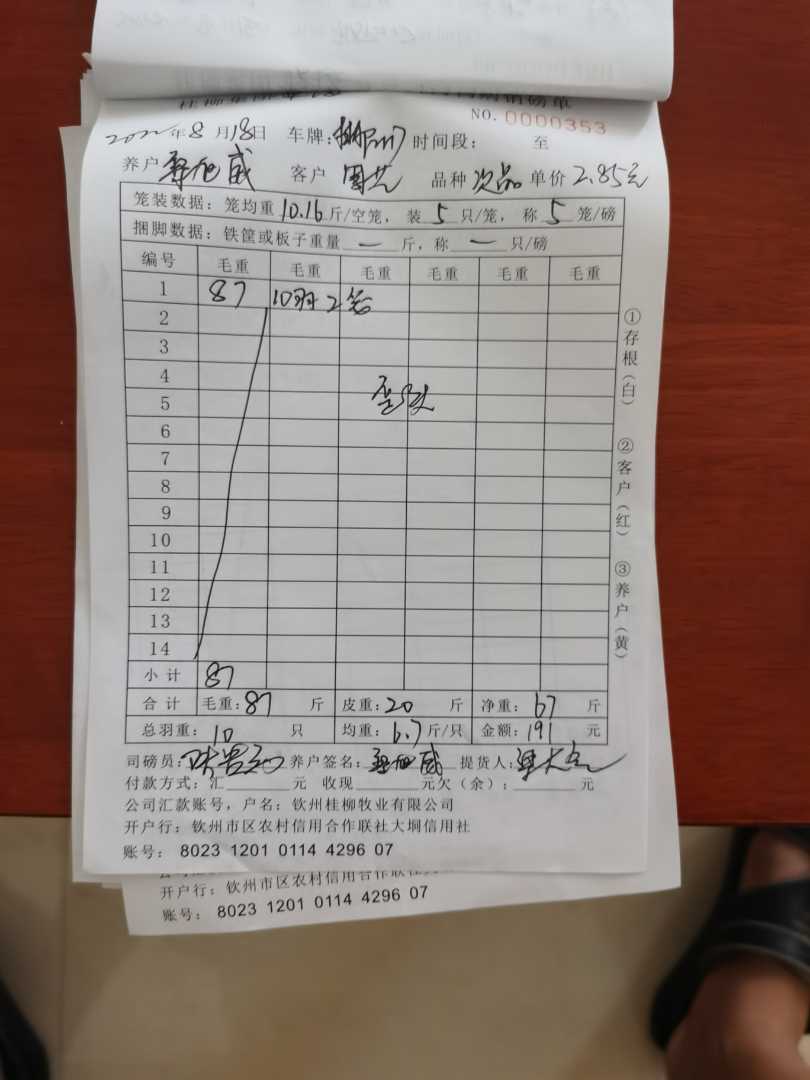 销磅单
NO. 0000353
2022年8月18日 车牌: 时间段: 至
养户 威 客户 国艺 品种 次品 单价 2.85元
笼装数据: 笼均重 10.16 斤/空笼, 装 5 只/笼, 称 5 笼/磅
捆脚数据: 铁筐或板子重量 — 斤, 称 — 只/磅
编号 毛重 毛重 毛重 毛重 毛重 毛重
1 87 10羽2笼
2
3
4
5
6
7
8
9
10
11
12
13
14
小计 87
合计 毛重: 87 斤 皮重: 20 斤 净重: 67 斤
总羽重: 10 只 均重: 6.7 斤/只 金额: 191 元
司磅员: 养户签名: 威 提货人:
付款方式: 汇 元 收现 元欠(余): 元
公司汇款账号, 户名: 钦州桂柳牧业有限公司
开户行: 钦州市区农村信用合作联社大垌信用社
账号: 8023 1201 0114 4296 07
①存根(白) ②客户(红) ③养户(黄)
开户行: 钦州市区农村信用合作联社
账号: 8023 1201 0114 4296 07